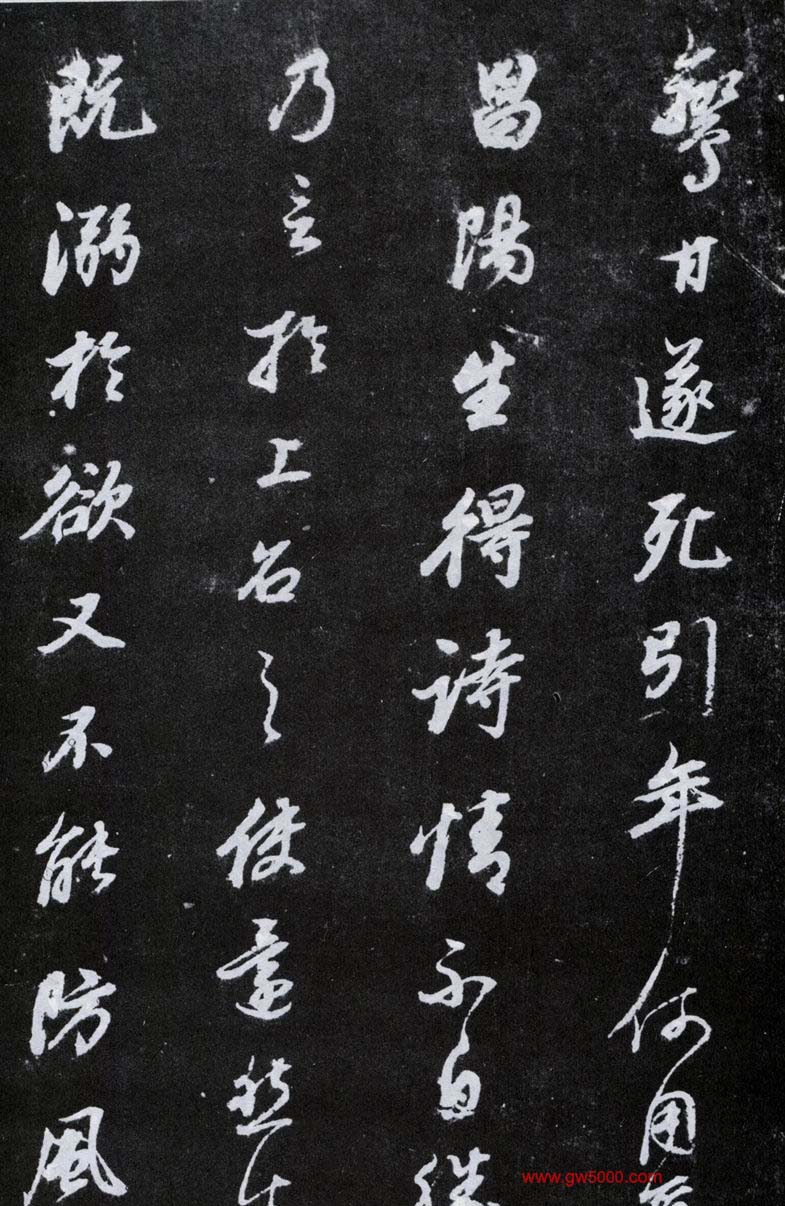 脔甘遂死引年何用
昌陽生得诗情不自
乃言於上召之使還然
既溺於欲又不能防風
www.gw5000.com